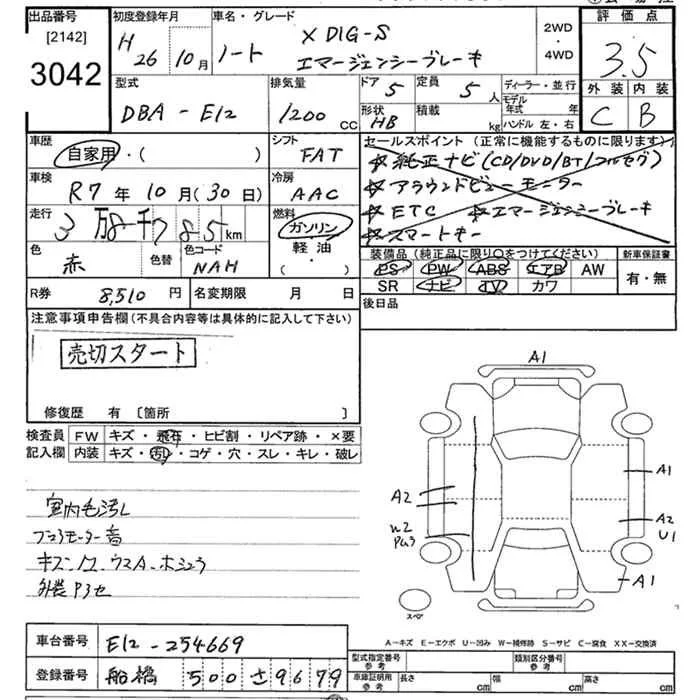 出品番号
[2142]
3042
初度登録年月
H 26年 10月
車名・グレード
ノート
X DIG-S
エマージェンシーブレーキ
2WD
・
4WD
評価点
3.5
外装 内装
C B
型式
DBA - E12
排気量
1200 cc
ドア 5
形状 HB
定員 5 人
積載 kg
ディーラー・並行
モデル年式 年
ハンドル 左・右
車歴
自家用・( )
シフト
FAT
車検
R7 年 10 月 (30 日)
冷房
AAC
走行
3万8千785 km
燃料
ガソリン
軽油・
色
赤
色替
色コード
NAH
セールスポイント (正常に機能するものに限ります)
☆純正ナビ(CD/DVD/BT/フルセグ)
☆アラウンドビューモニター
☆ETC ☆エマージェンシーブレーキ
☆スマートキー
装備品(純正品に限り○をつけてください)
PS PW ABS エアB AW
SR ナビ TV カワ
新車保証書
有・無
R券 8,510 円
名変期限 月 日
後日品
注意事項申告欄(不具合内容等は具体的に記入して下さい)
売切スタート
修復歴 有 [箇所 ]
検査員記入欄
FW キズ・飛石・ヒビ割・リペア跡・×要
内装 キズ・汚れ・コゲ・穴・スレ・キレ・破レ
室内毛汚レ
外装P3セ
A1
A2
A1
A2
U1
A1
スペア
A－キズ E－エクボ U－凹み W－補修跡 S－サビ C－腐食 XX－交換済
車台番号 E12-254669
登録番号 船橋 500 さ 9679
型式指定番号 参考
類別区分番号 参考
車庫証明用 参考
長さ cm
幅 cm
高さ cm